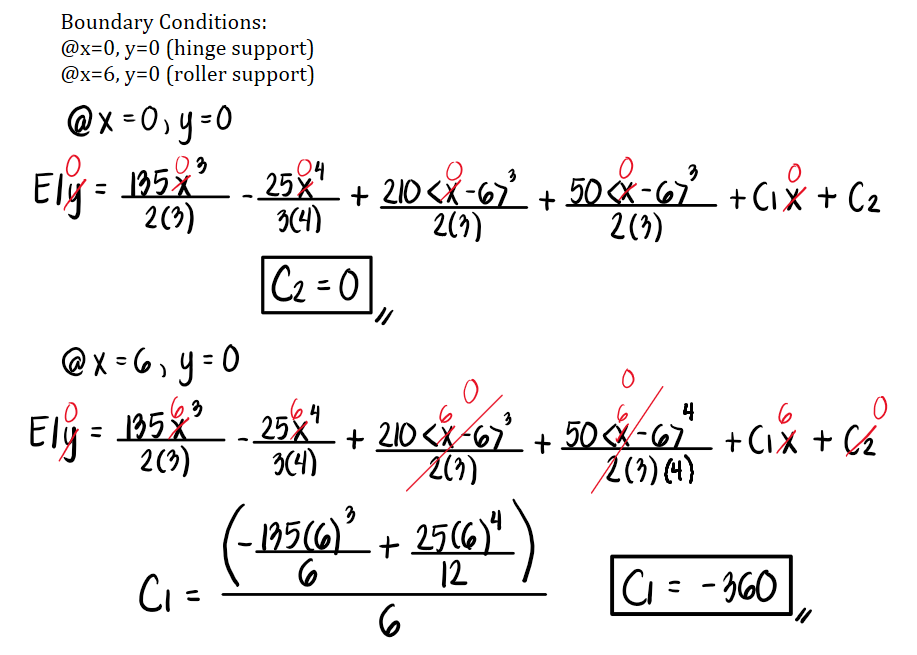 Boundary Conditions:
@x=0, y=0 (hinge support)
@x=6, y=0 (roller support)
@ x = 0, y = 0
EIy⁰ = 135x⁰³/2(3) - 25x⁰⁴/3(4) + 210<x⁰-6>³/2(3) + 50<x⁰-6>³/2(3) + C1x⁰ + C2
C2 = 0 //
@ x = 6, y = 0
EIy⁰ = 135x⁶³/2(3) - 25x⁶⁴/3(4) + 210<x⁶-6>³/2(3) ⁰ + 50<x⁶-6>⁴/2(3)(4) ⁰ + C1x⁶ + C2⁰
C1 = (-135(6)³/6 + 25(6)⁴/12)/6
C1 = -360 //